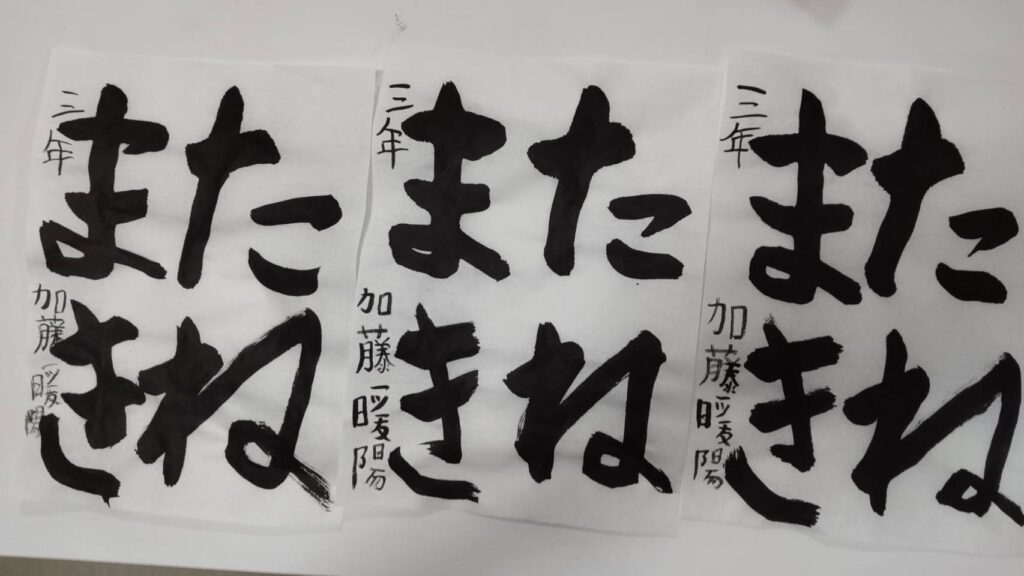 たね
まき
三年 加藤暖陽
たね
まき
三年 加藤暖陽
たね
まき
三年 加藤暖陽